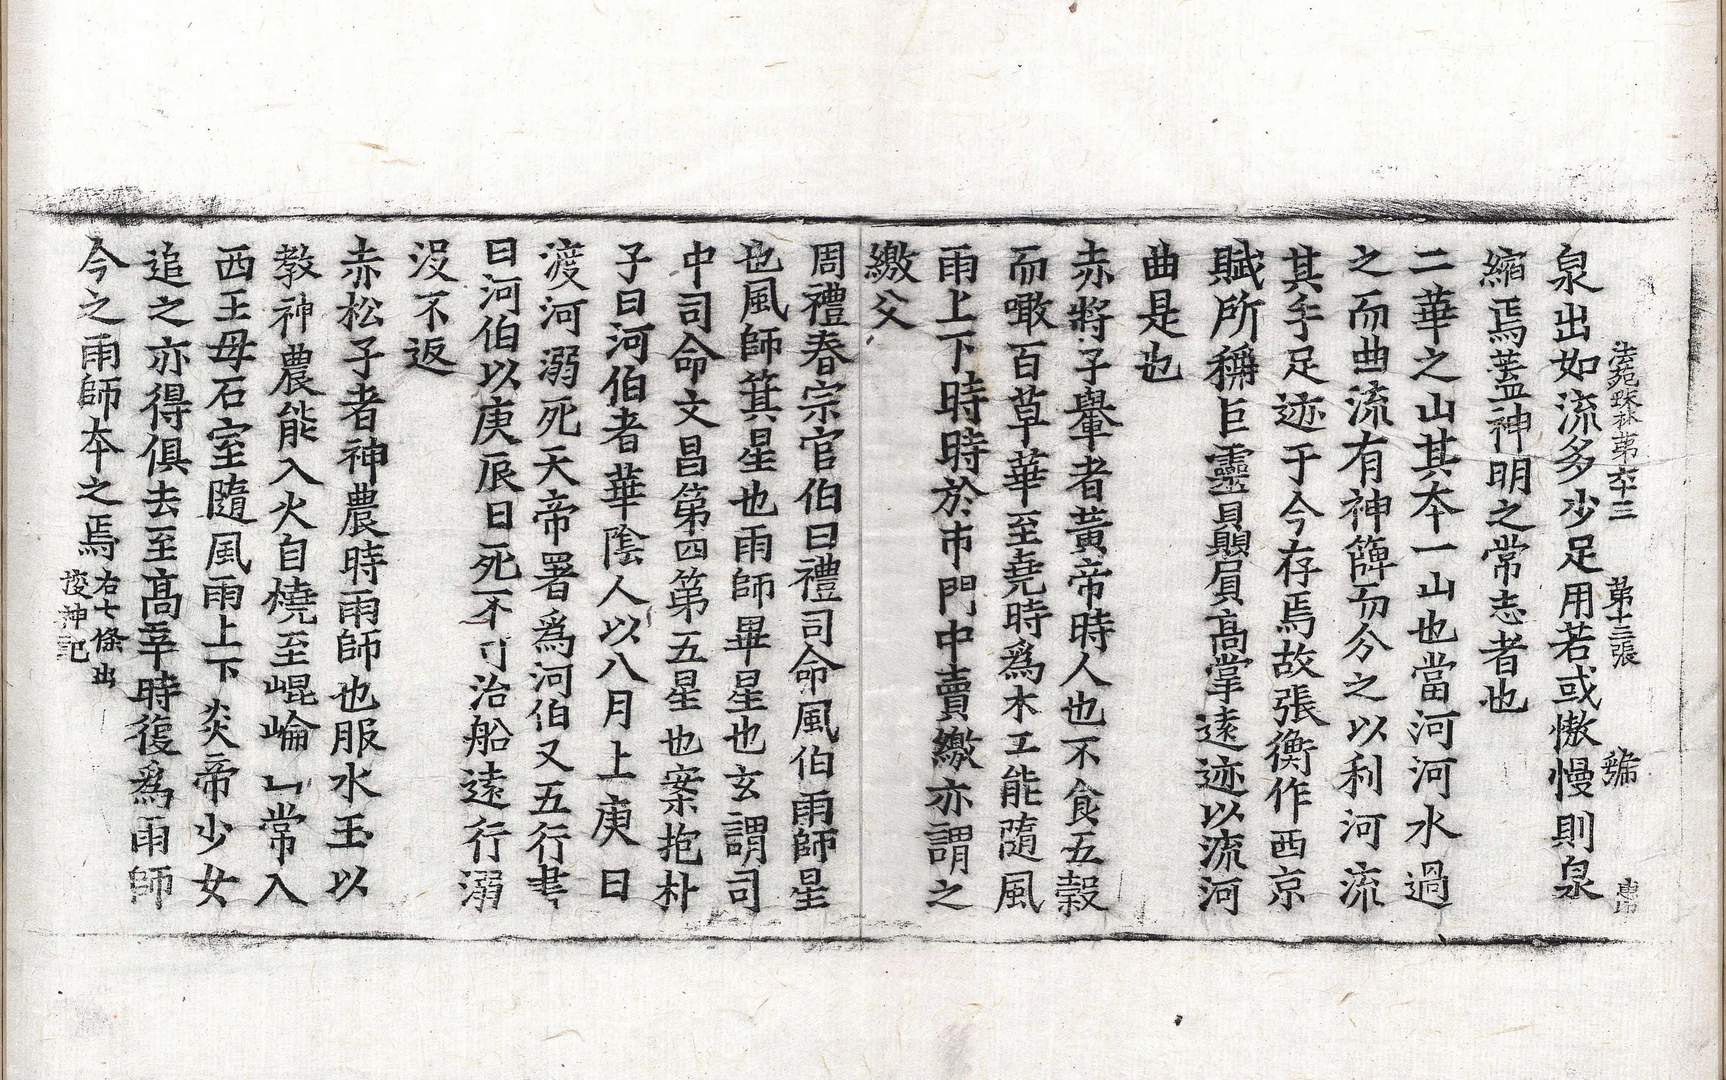 法苑珠林第六十三 第十三張 號
泉出如流多少足用若或慠慢則泉
縮焉蓋神明之常志者也
二華之山其本一山也當河河水過
之而曲流有神篺而分之以利河流
其手足迹于今存焉故張衡作西京
賦所稱巨靈贔屓高掌遠迹以流河
曲是也
赤將子轝者黃帝時人也不食五穀
而噉百草華至堯時爲木工能隨風
雨上下時時於市門中賣繳亦謂之
繳父
周禮春宗官伯曰禮司命風伯雨師星
也風師箕星也雨師畢星也玄謂司
中司命文昌第四第五星也案抱朴
子曰河伯者華陰人以八月上庚日
渡河溺死天帝署爲河伯又五行書
曰河伯以庚辰日死不可治船遠行溺
沒不返
赤松子者神農時雨師也服水玉以
教神農能入火自燒至崐崘山常入
西王母石室隨風雨上下炎帝少女
追之亦得俱去至高辛時復爲雨師
今之雨師本之焉 右七條出
搜神記